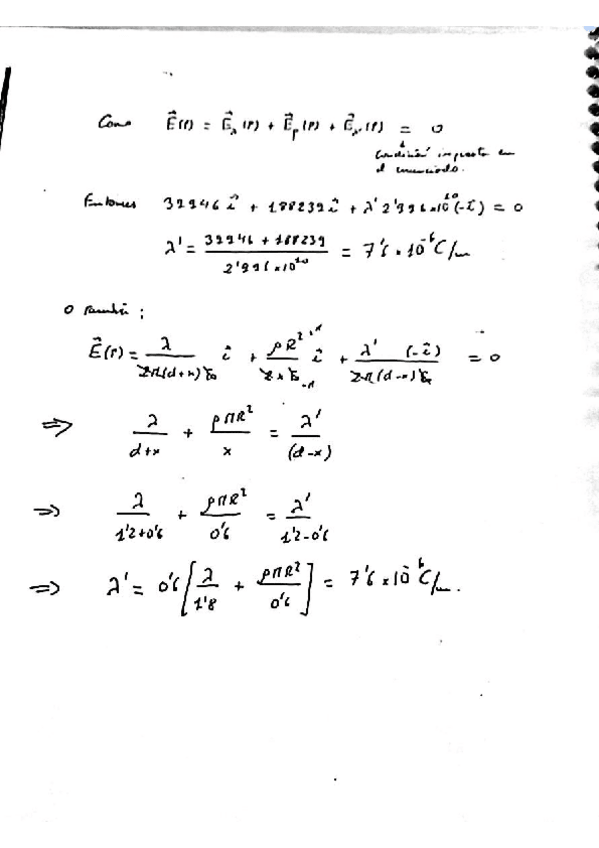 Como E⃗(P) = E⃗λ(P) + E⃗ρ(P) + E⃗λ'(P) = 0
Condición impuesta en
el enunciado.
Entonces 39946 î + 188239 î + λ' 2'996×10¹⁰ (-î) = 0
λ' = (39946 + 188239) / (2'996×10¹⁰) = 7'6 × 10⁻⁶ C/m
O también :
E⃗(P) = λ / (2π(d+x)ε₀) î + ρR² / (2xε₀) î + λ' (-î) / (2π(d-x)ε₀) = 0
⇒ λ / (d+x) + ρπR² / x = λ' / (d-x)
⇒ λ / (1'2+0'6) + ρπR² / 0'6 = λ' / (1'2-0'6)
⇒ λ' = 0'6 [ λ / 1'8 + ρπR² / 0'6 ] = 7'6 × 10⁻⁶ C/m.